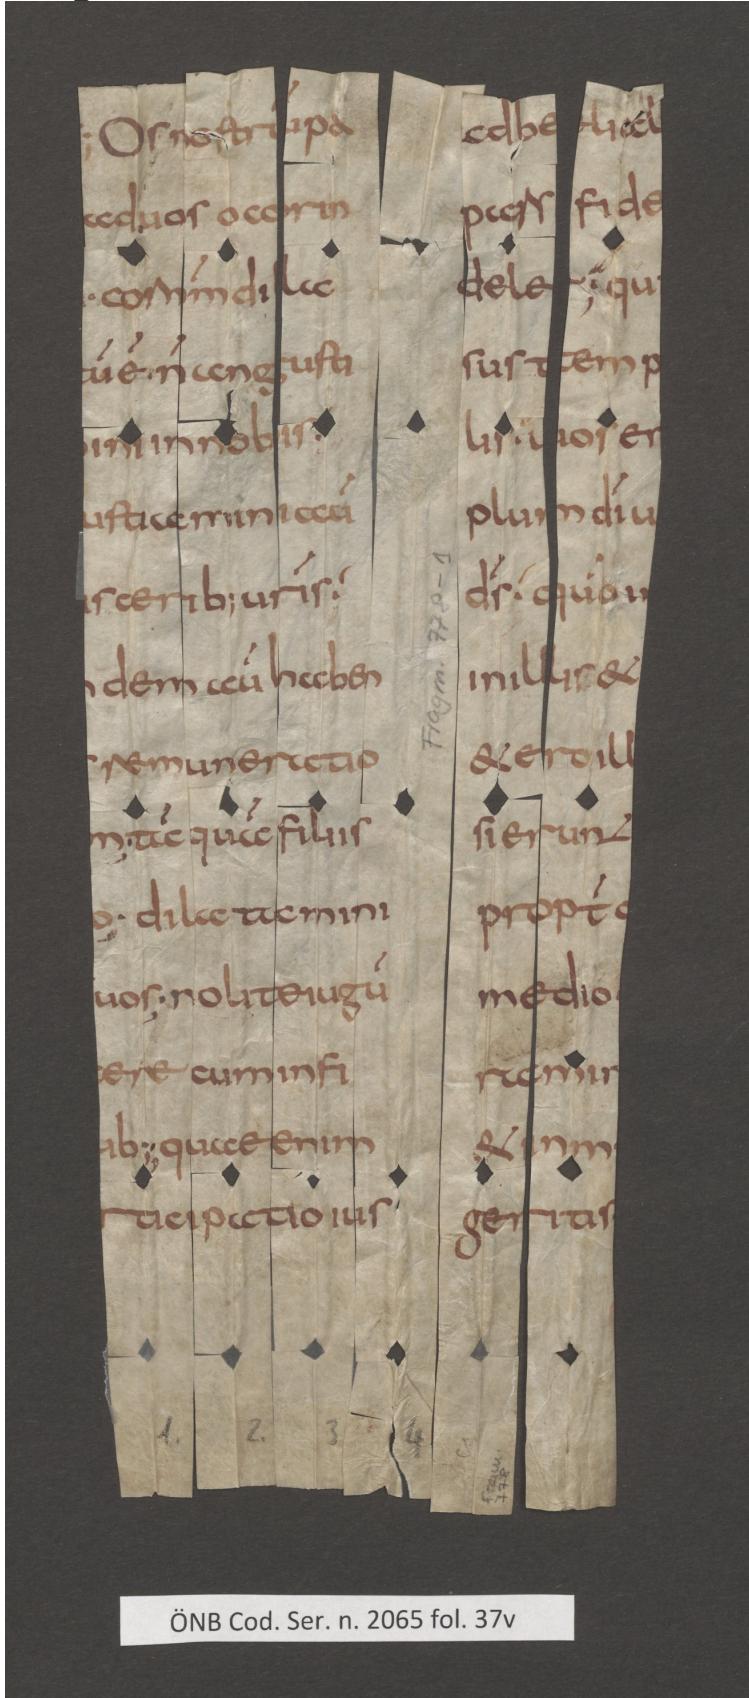 ; Os nostrū pa
aduos o corin
· cor nr̄m dila
tū ē · n̄ angusti
ini in nobis ·
ustiamini aū
isceribus uris ·
dem aū haben
remuneratio
m · tāquā filiis
o · dilatamini
uos · nolite iugū
cere cum infi
ab; quae enim
rticipatio ius
ad beli
pars fide
deler; qu
sus temp
lis · uos e
plum dī u
ds̄ · quō in
in illis &
& ero ill
si erunt
propt
medio
rem in
& inm
ger itis
Fragm. 778-1
1.
2.
3
4
Fragm. 778
ÖNB Cod. Ser. n. 2065 fol. 37v